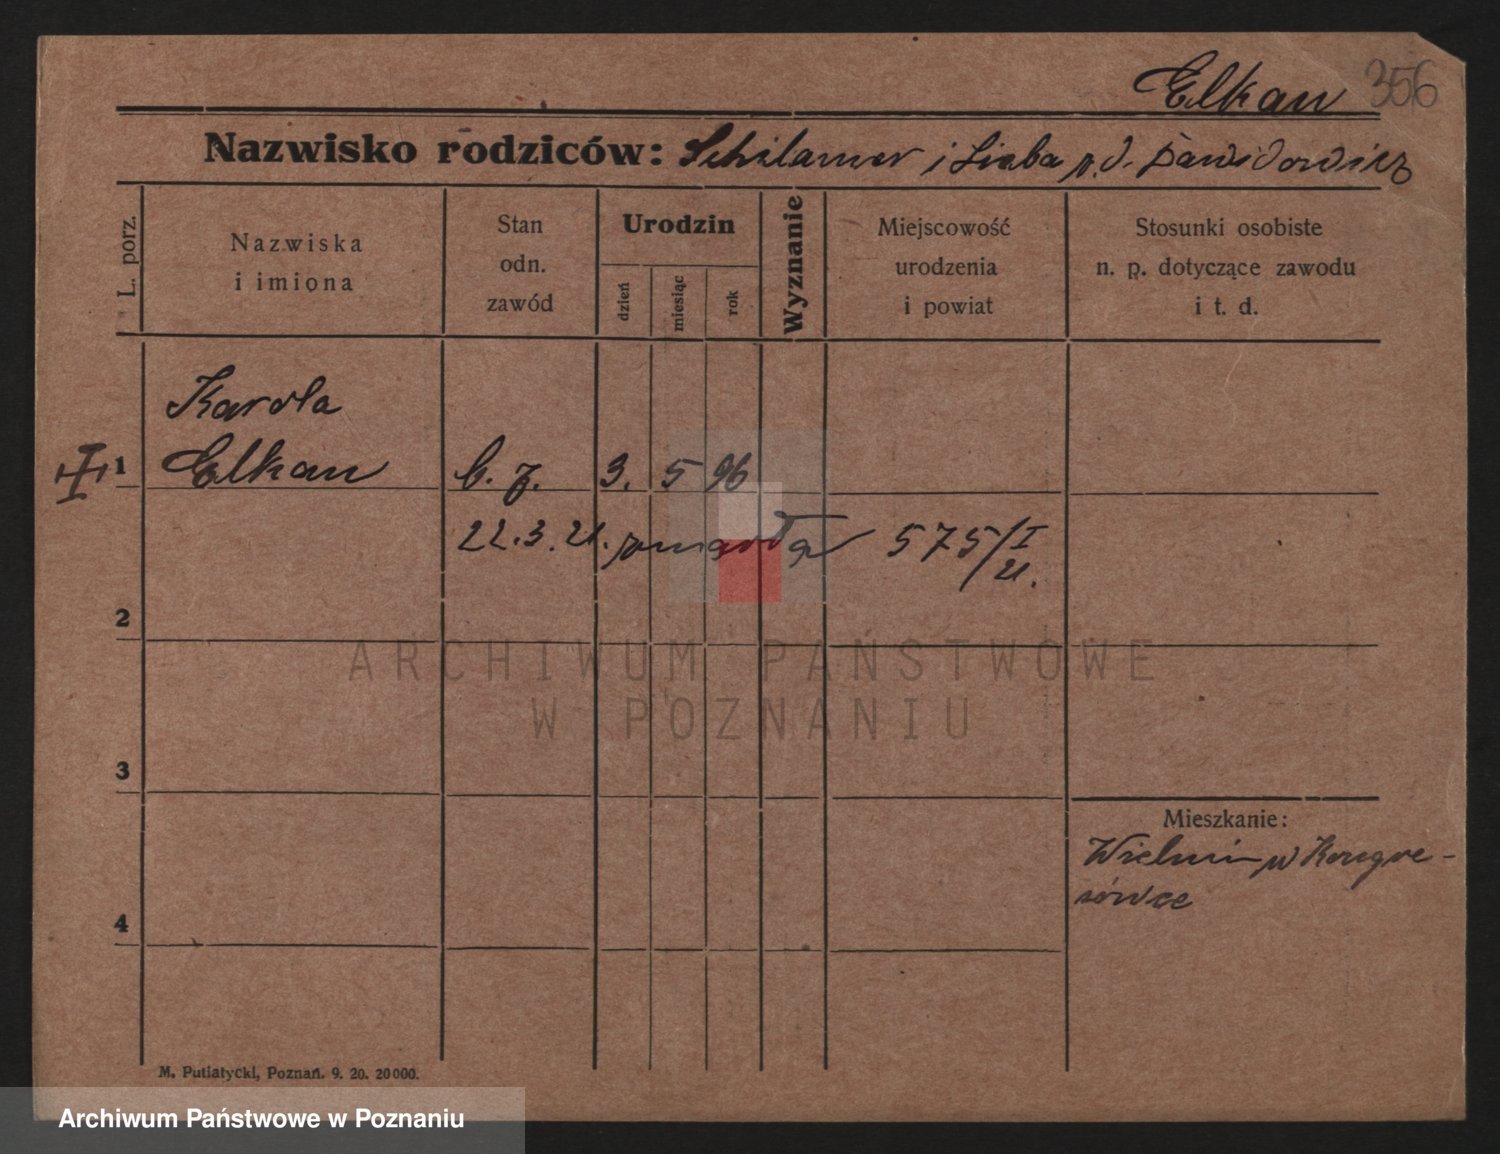 Elkan 356
Nazwisko rodziców: Schilamer i Lieba p. d. Dawidowicz
L. porz.
Nazwiska
i imiona
Stan
odn.
zawód
Urodzin
dzień
miesiąc
rok
Wyznanie
Miejscowość
urodzenia
i powiat
Stosunki osobiste
n. p. dotyczące zawodu
i t. d.
Karola
1 Elkan b. z. 3. 5 96
22.3.21. zmarła 575/I
21.
2
3
Mieszkanie:
Wieluń w Kongre-
sówce
4
M. Putiatycki, Poznań. 9. 20. 20000.
ARCHIWUM PAŃSTWOWE
W POZNANIU
Archiwum Państwowe w Poznaniu